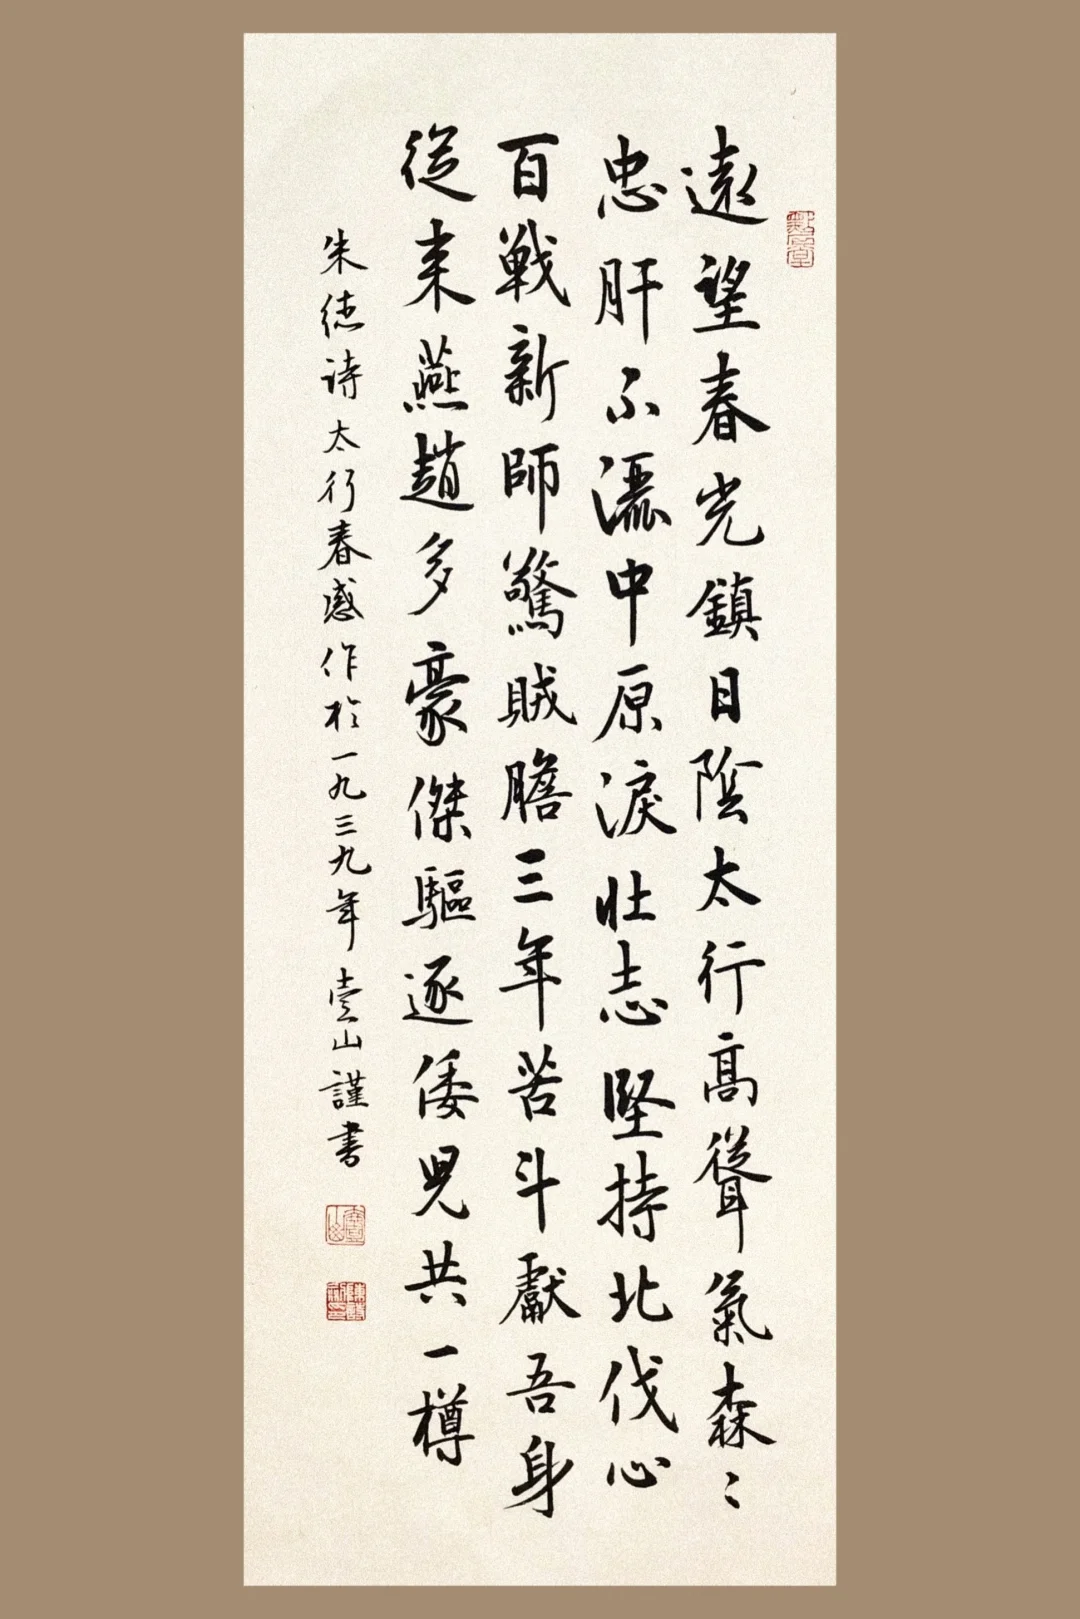 遠望春光鎮日陰太行高聳氣森〻
忠肝不灑中原淚壯志堅持北伐心
百戰新師驚賊膽三年苦鬥獻吾身
從来燕趙多豪傑驅逐倭兒共一樽
朱德诗太行春感作於一九三九年壹山謹書